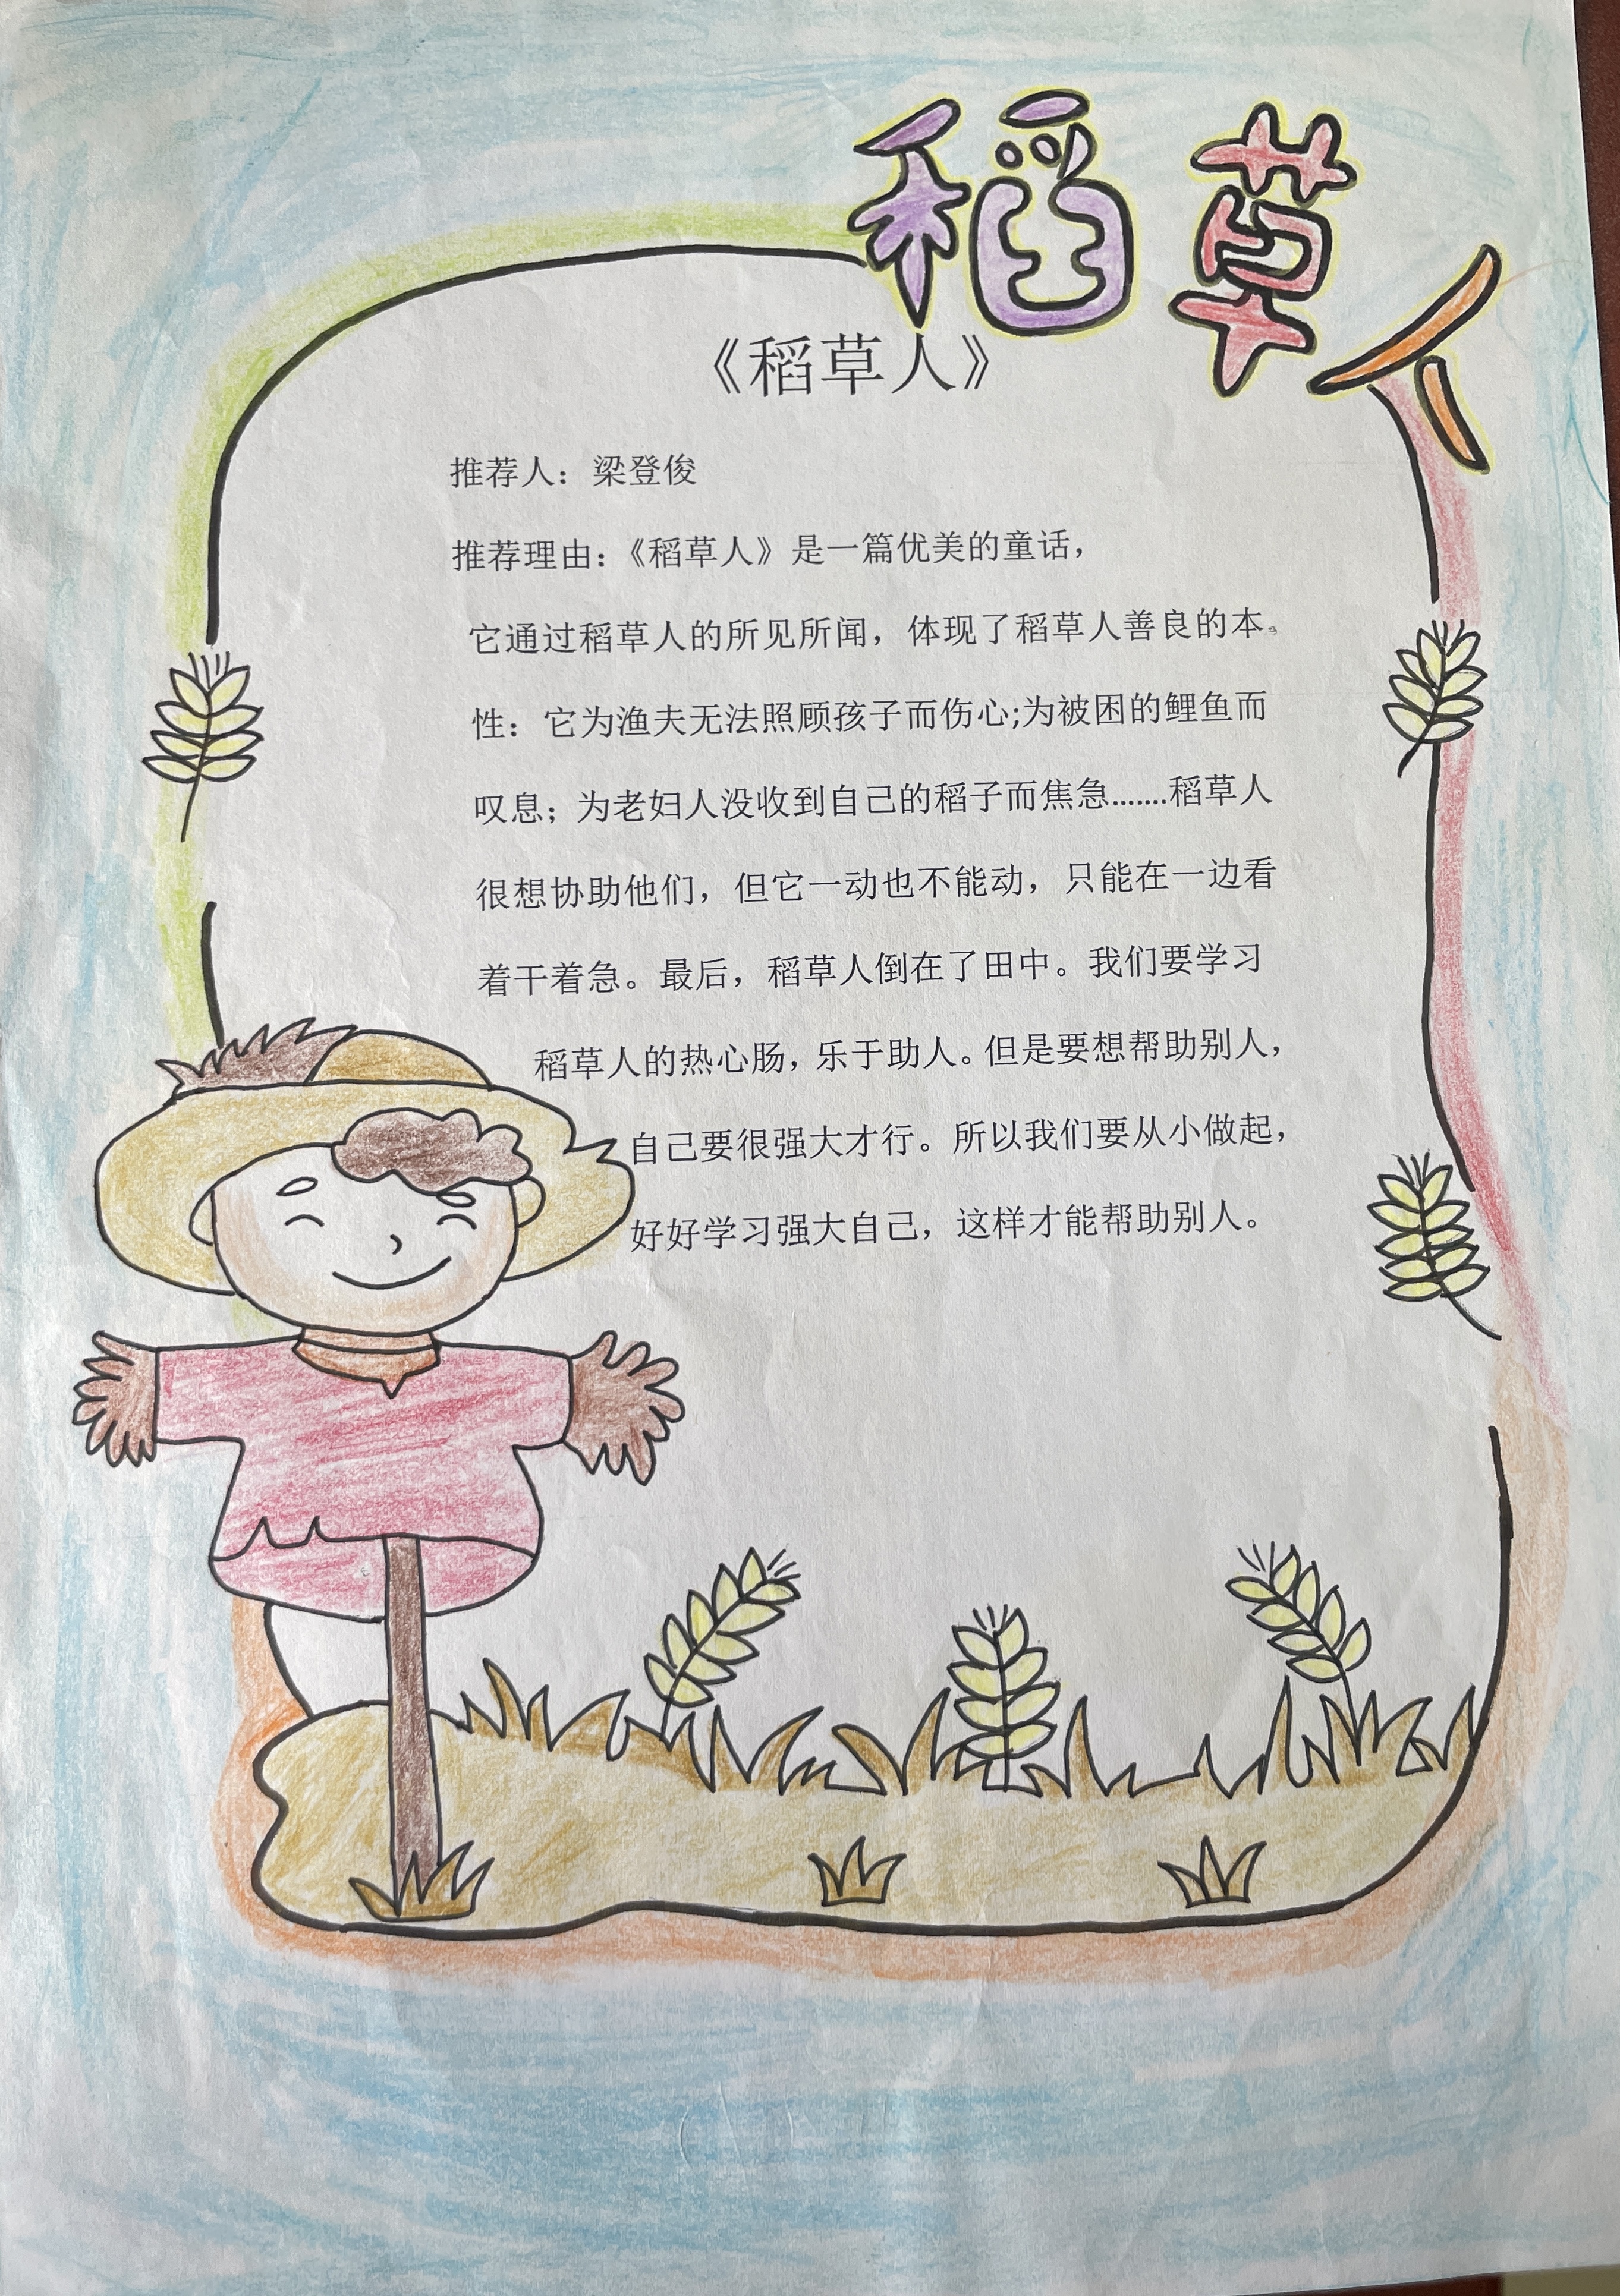 稻草人
《稻草人》
推荐人：梁登俊
推荐理由：《稻草人》是一篇优美的童话，
它通过稻草人的所见所闻，体现了稻草人善良的本。
性：它为渔夫无法照顾孩子而伤心;为被困的鲤鱼而
叹息；为老妇人没收到自己的稻子而焦急.......稻草人
很想协助他们，但它一动也不能动，只能在一边看
着干着急。最后，稻草人倒在了田中。我们要学习
稻草人的热心肠，乐于助人。但是要想帮助别人，
自己要很强大才行。所以我们要从小做起，
好好学习强大自己，这样才能帮助别人。